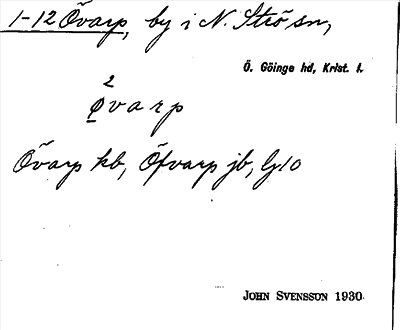 1-12 Övarp, by i N. Strö sn,
Ö. Göinge hd, Krist. l.
2
øvarp
Övarp hb, Öfvarp jb, G10
JOHN SVENSSON 1930